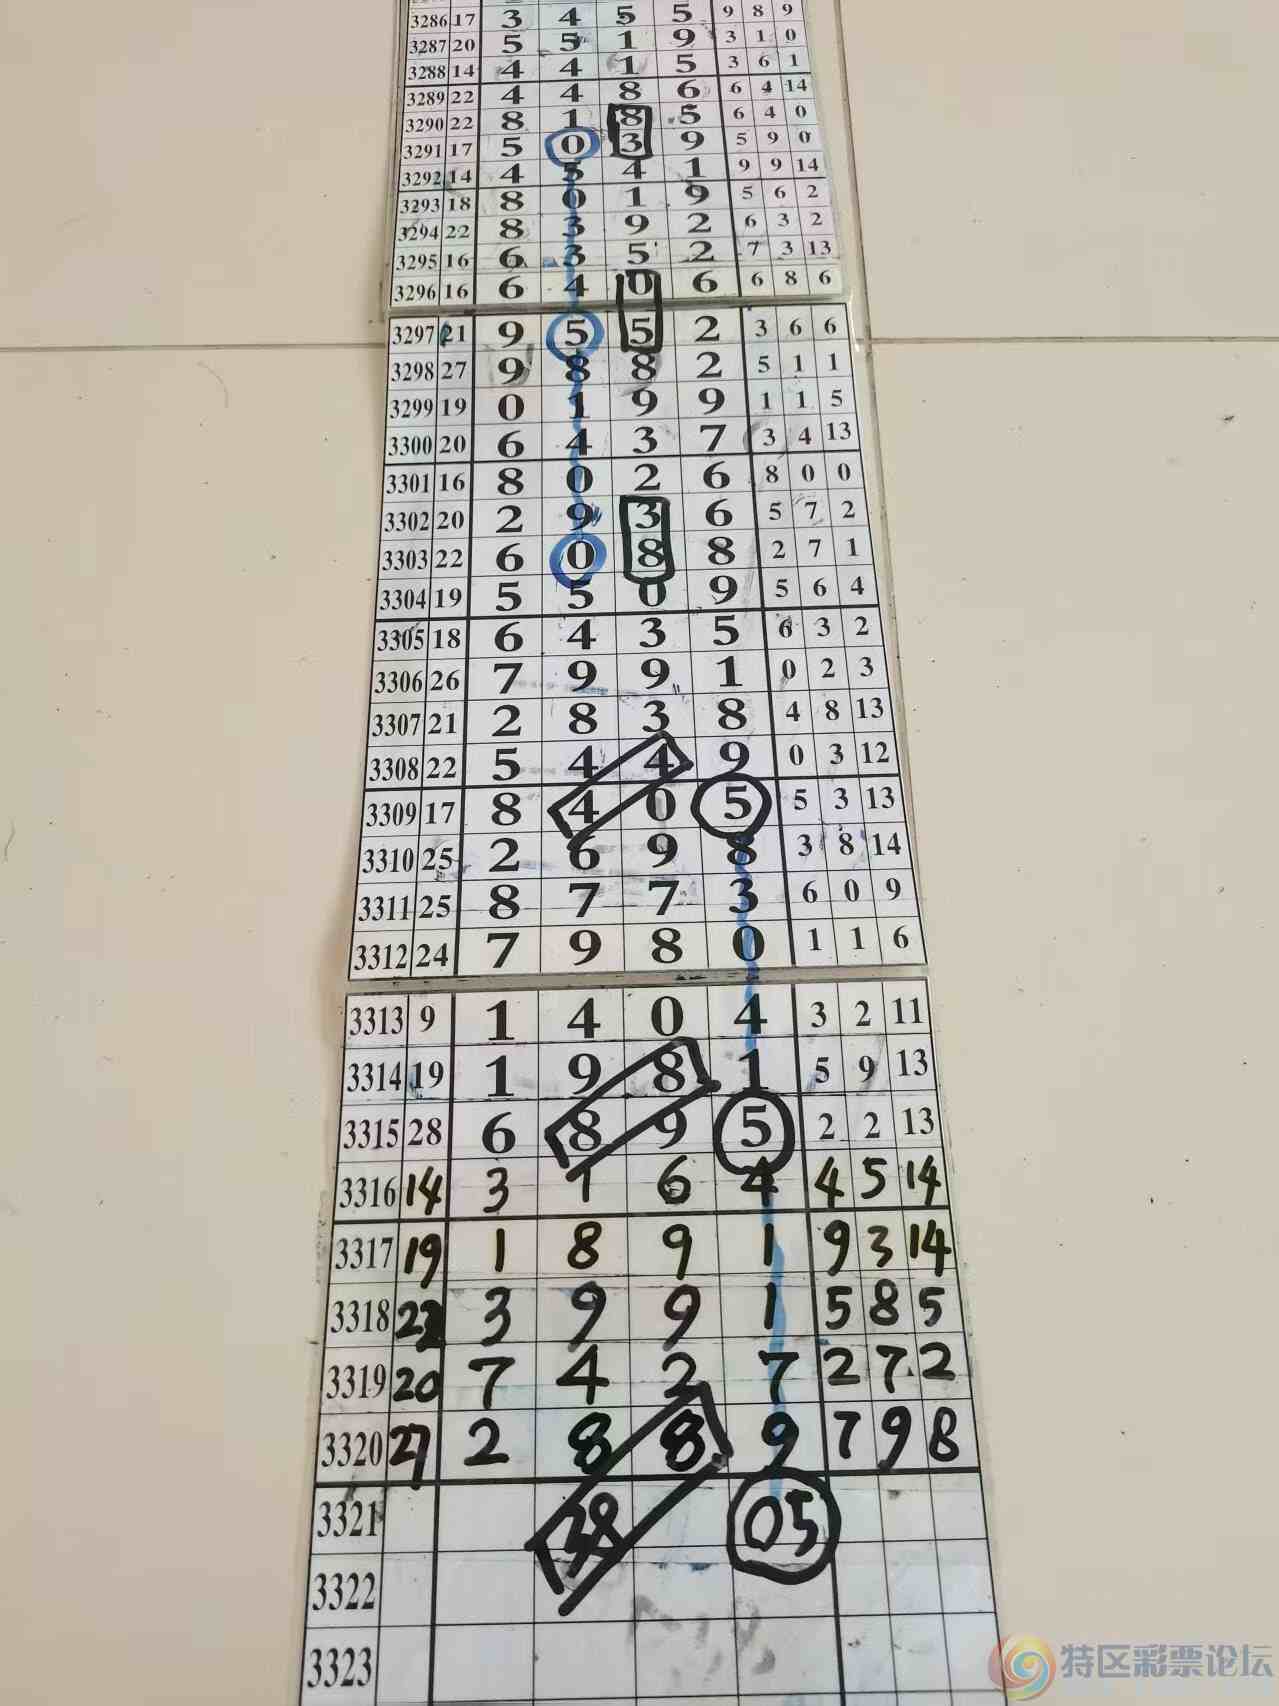 3286 17 3 4 5 5 9 8 9
3287 20 5 5 1 9 3 1 0
3288 14 4 4 1 5 3 6 1
3289 22 4 4 8 6 6 4 14
3290 22 8 1 8 5 6 4 0
3291 17 5 0 3 9 5 9 0
3292 14 4 5 4 1 9 9 14
3293 18 8 0 1 9 5 6 2
3294 22 8 3 9 2 6 3 2
3295 16 6 3 5 2 7 3 13
3296 16 6 4 0 6 6 8 6
3297 21 9 5 5 2 3 6 6
3298 27 9 8 8 2 5 1 1
3299 19 0 1 9 9 1 1 5
3300 20 6 4 3 7 3 4 13
3301 16 8 0 2 6 8 0 0
3302 20 2 9 3 6 5 7 2
3303 22 6 0 8 8 2 7 1
3304 19 5 5 0 9 5 6 4
3305 18 6 4 3 5 6 3 2
3306 26 7 9 9 1 0 2 3
3307 21 2 8 3 8 4 8 13
3308 22 5 4 4 9 0 3 12
3309 17 8 4 0 5 5 3 13
3310 25 2 6 9 8 3 8 14
3311 25 8 7 7 3 6 0 9
3312 24 7 9 8 0 1 1 6
3313 9 1 4 0 4 3 2 11
3314 19 1 9 8 1 5 9 13
3315 28 6 8 9 5 2 2 13
3316 14 3 1 6 4 4 5 14
3317 19 1 8 9 1 9 3 14
3318 22 3 9 9 1 5 8 5
3319 20 7 4 2 7 2 7 2
3320 27 2 8 8 9 7 9 8
3321 38 05
3322
3323
特区彩票论坛